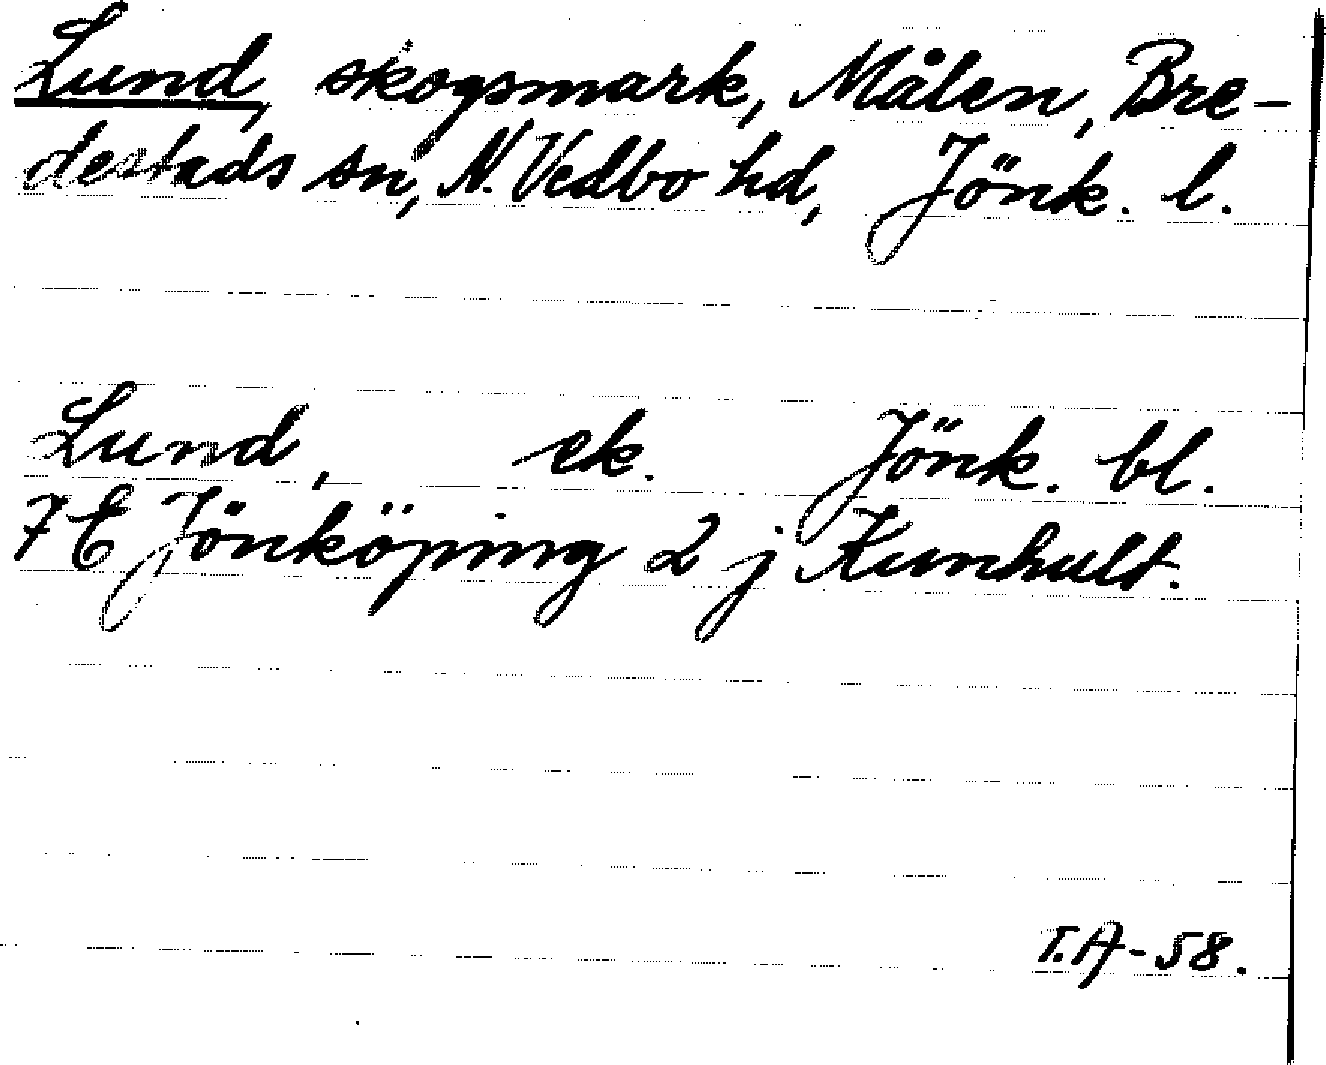 Lund, skogsmark, Målen, Bre-
destads sn, N. Vedbo hd, Jönk. l.
Lund, ek. Jönk. bl.
7 E Jönköping 2 j Kunhult.
T.A-58.